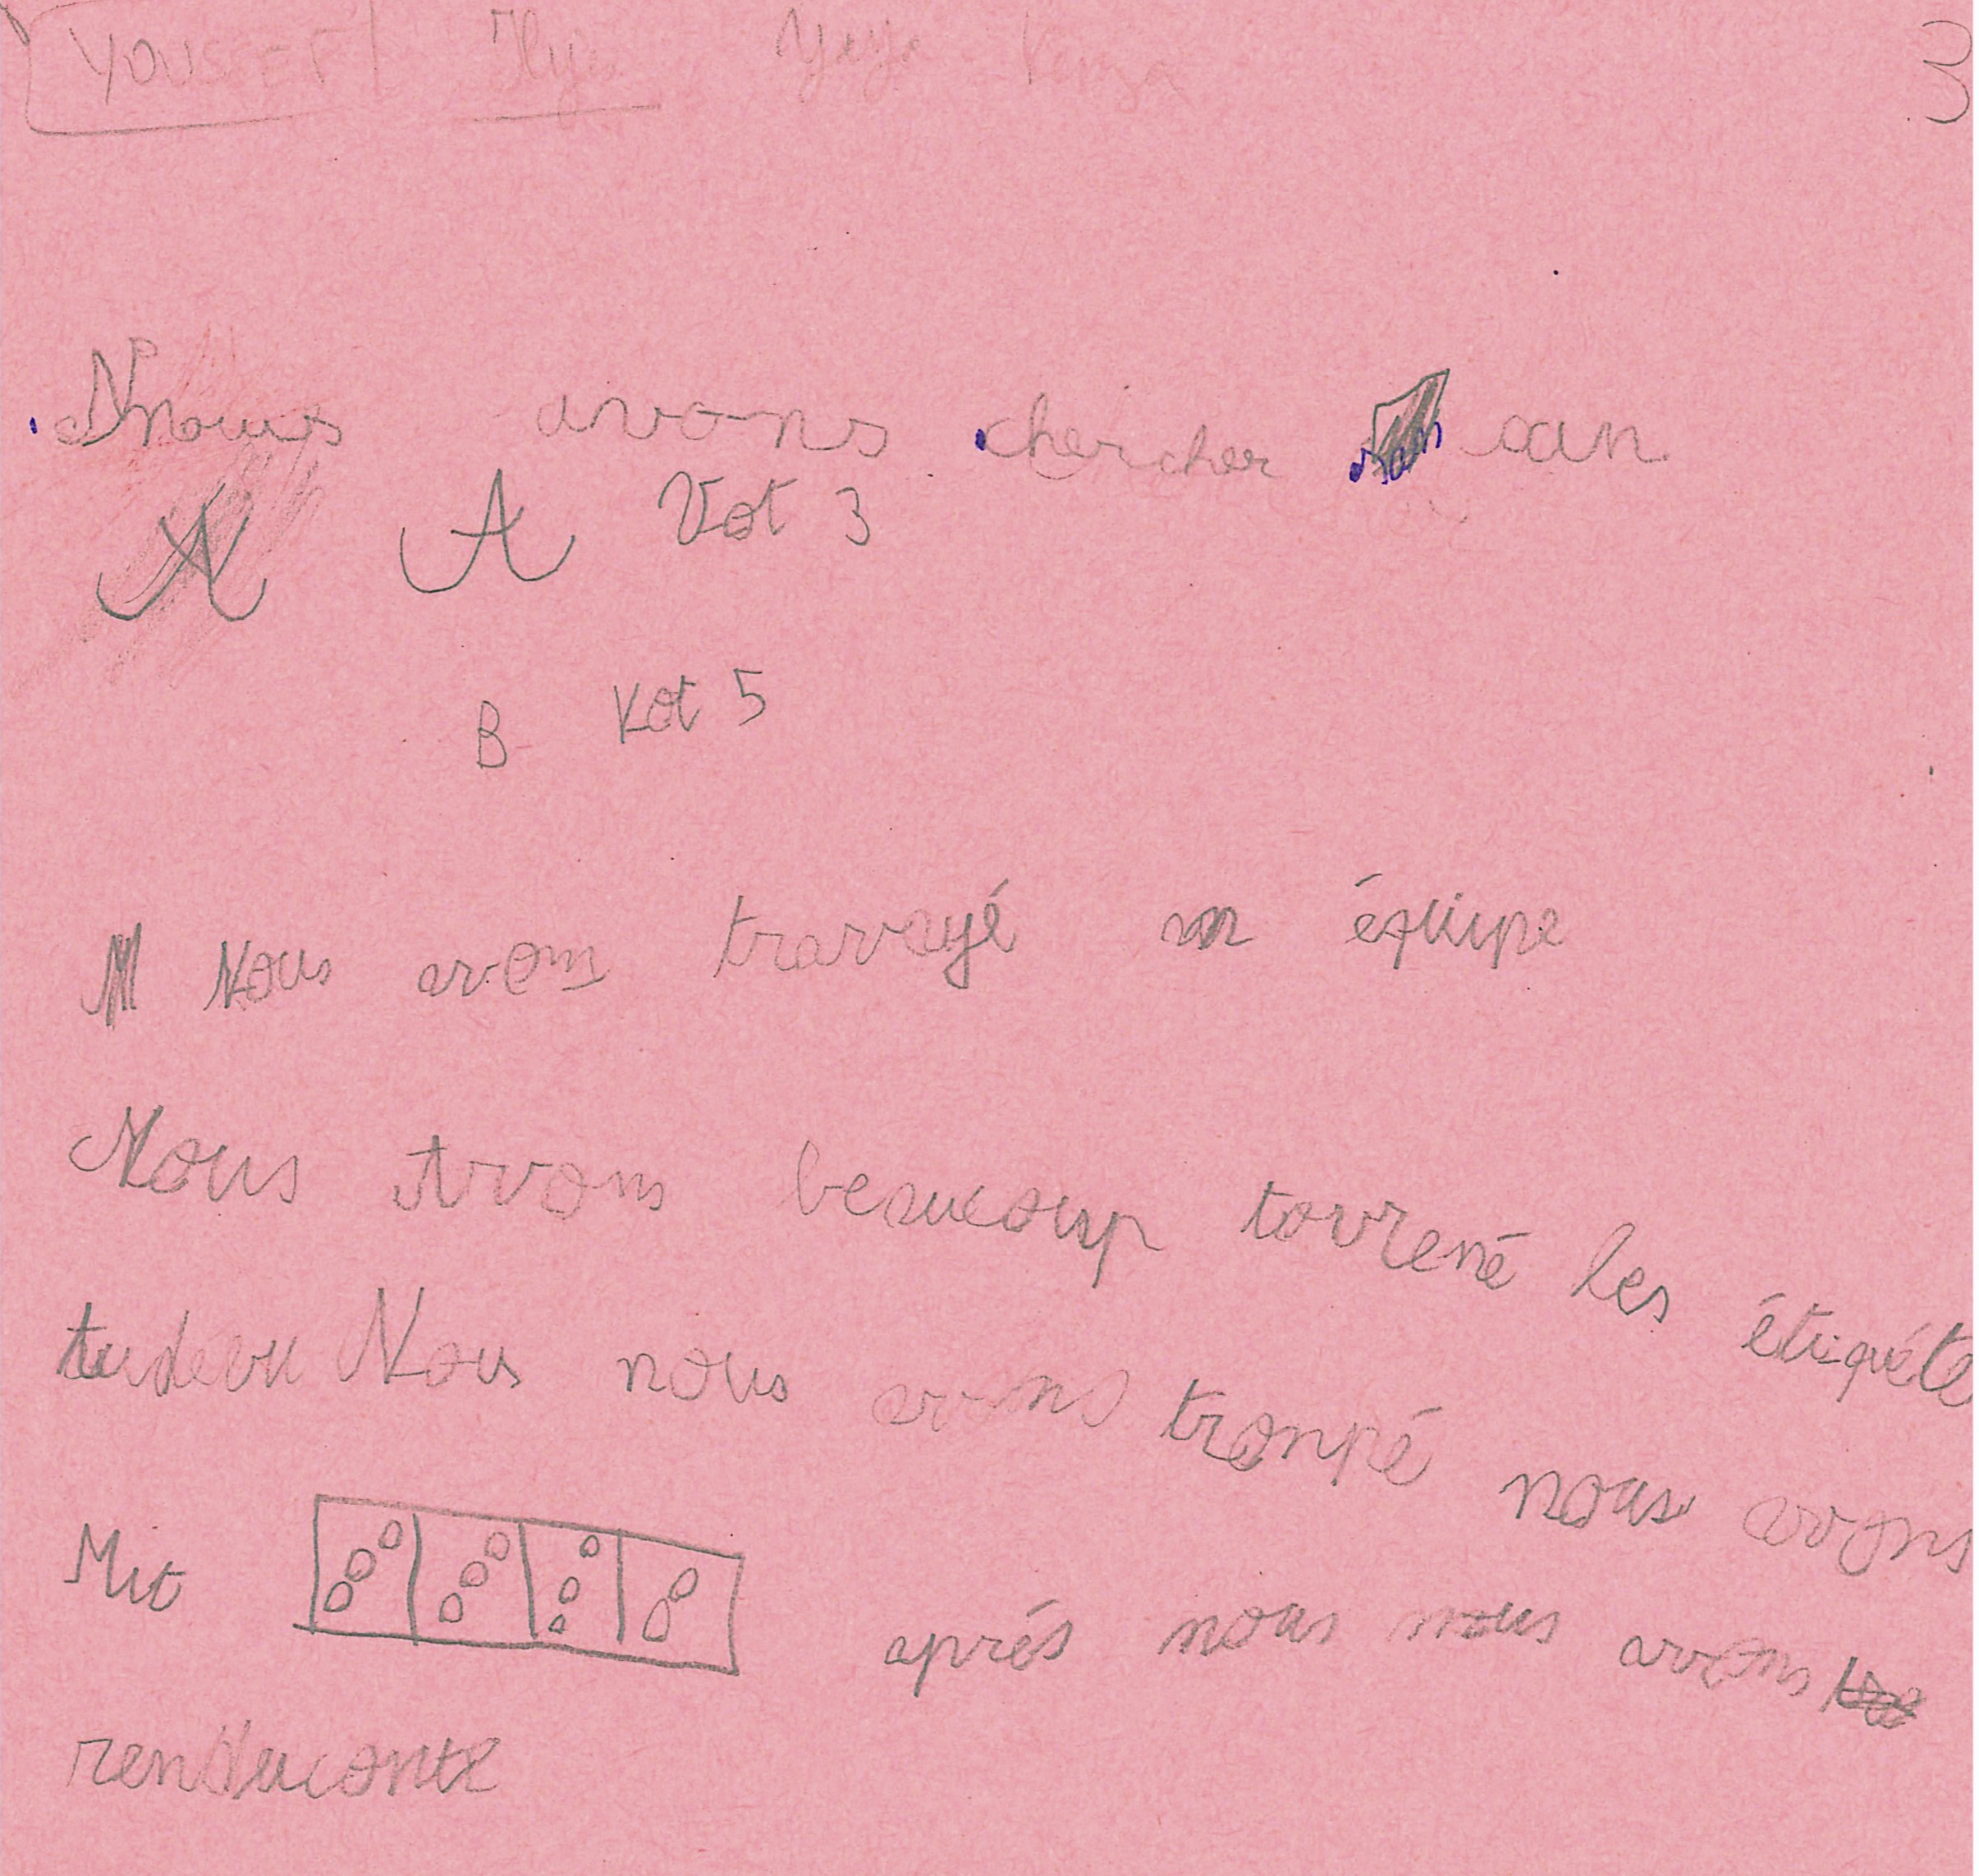 YOUSSEF Ilyes Yaya Kenza 3
Nnous avons chercher san
A Vot 3
B Vot 5
Nous avons travayé en équipe
Nous Avons beaucoup tourené les étiquéte
tudevu Nous nous avons tronpé nous avons
Mit après nous nous avons
renduconte